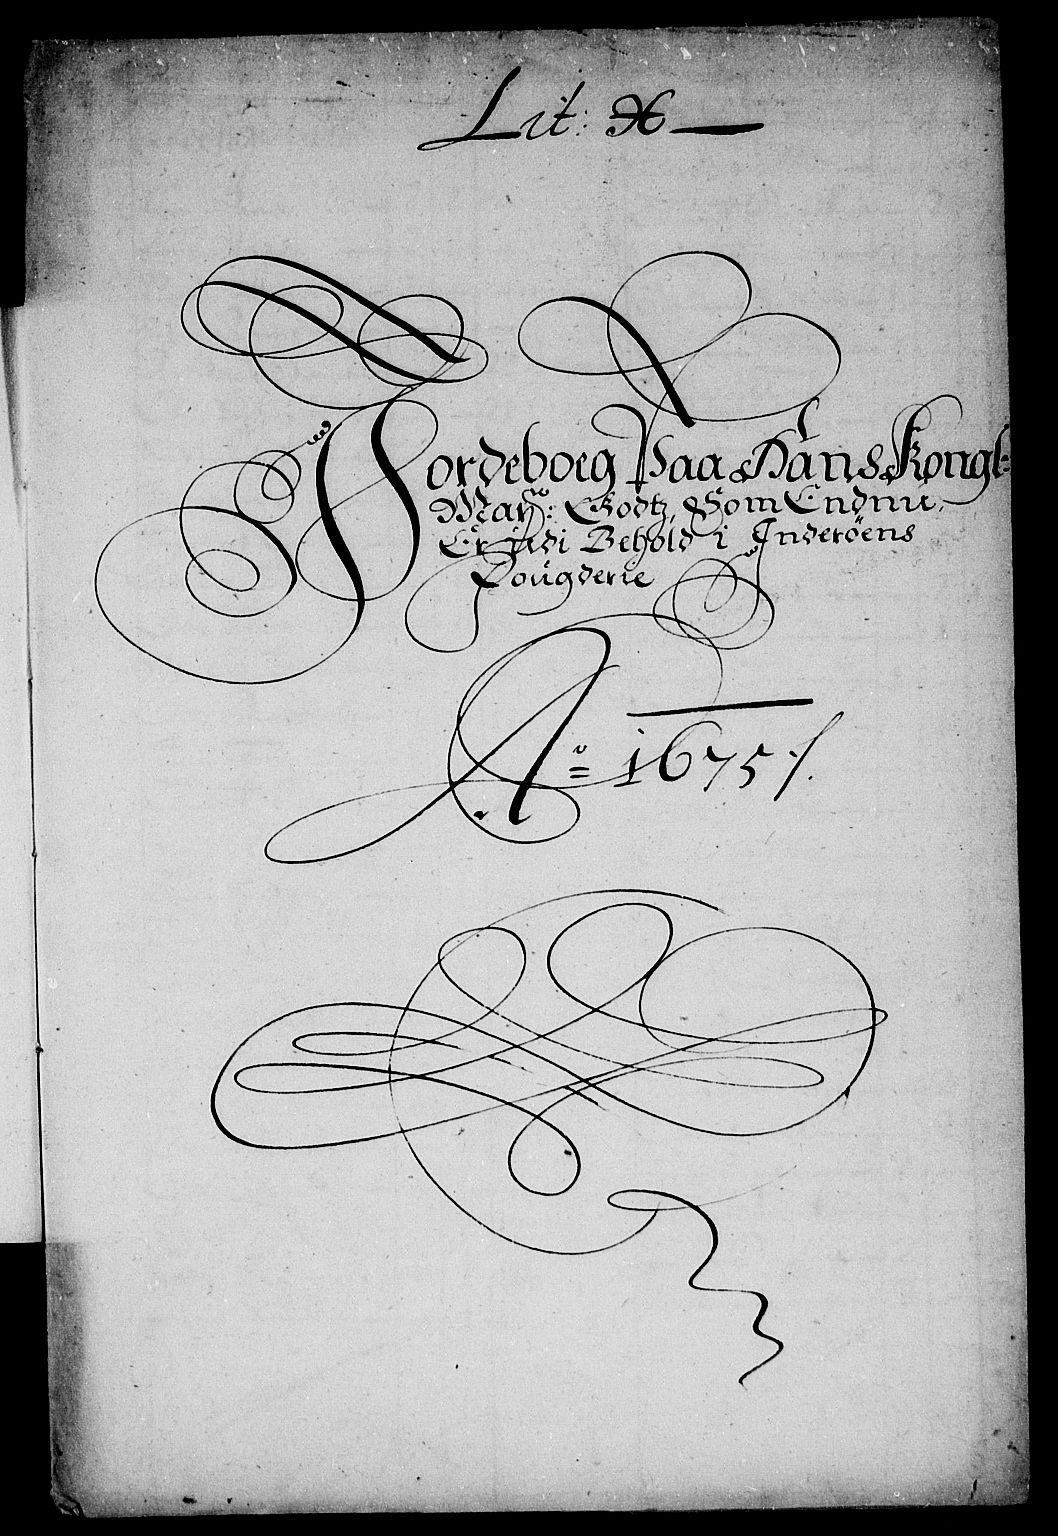 Lit: H
Jordeboeg Paa Hans Kongl:
Maytz: Godtz, Som Endnu
Er udi Behold i Inderöens
Fougderie
Ao 1675 ./.